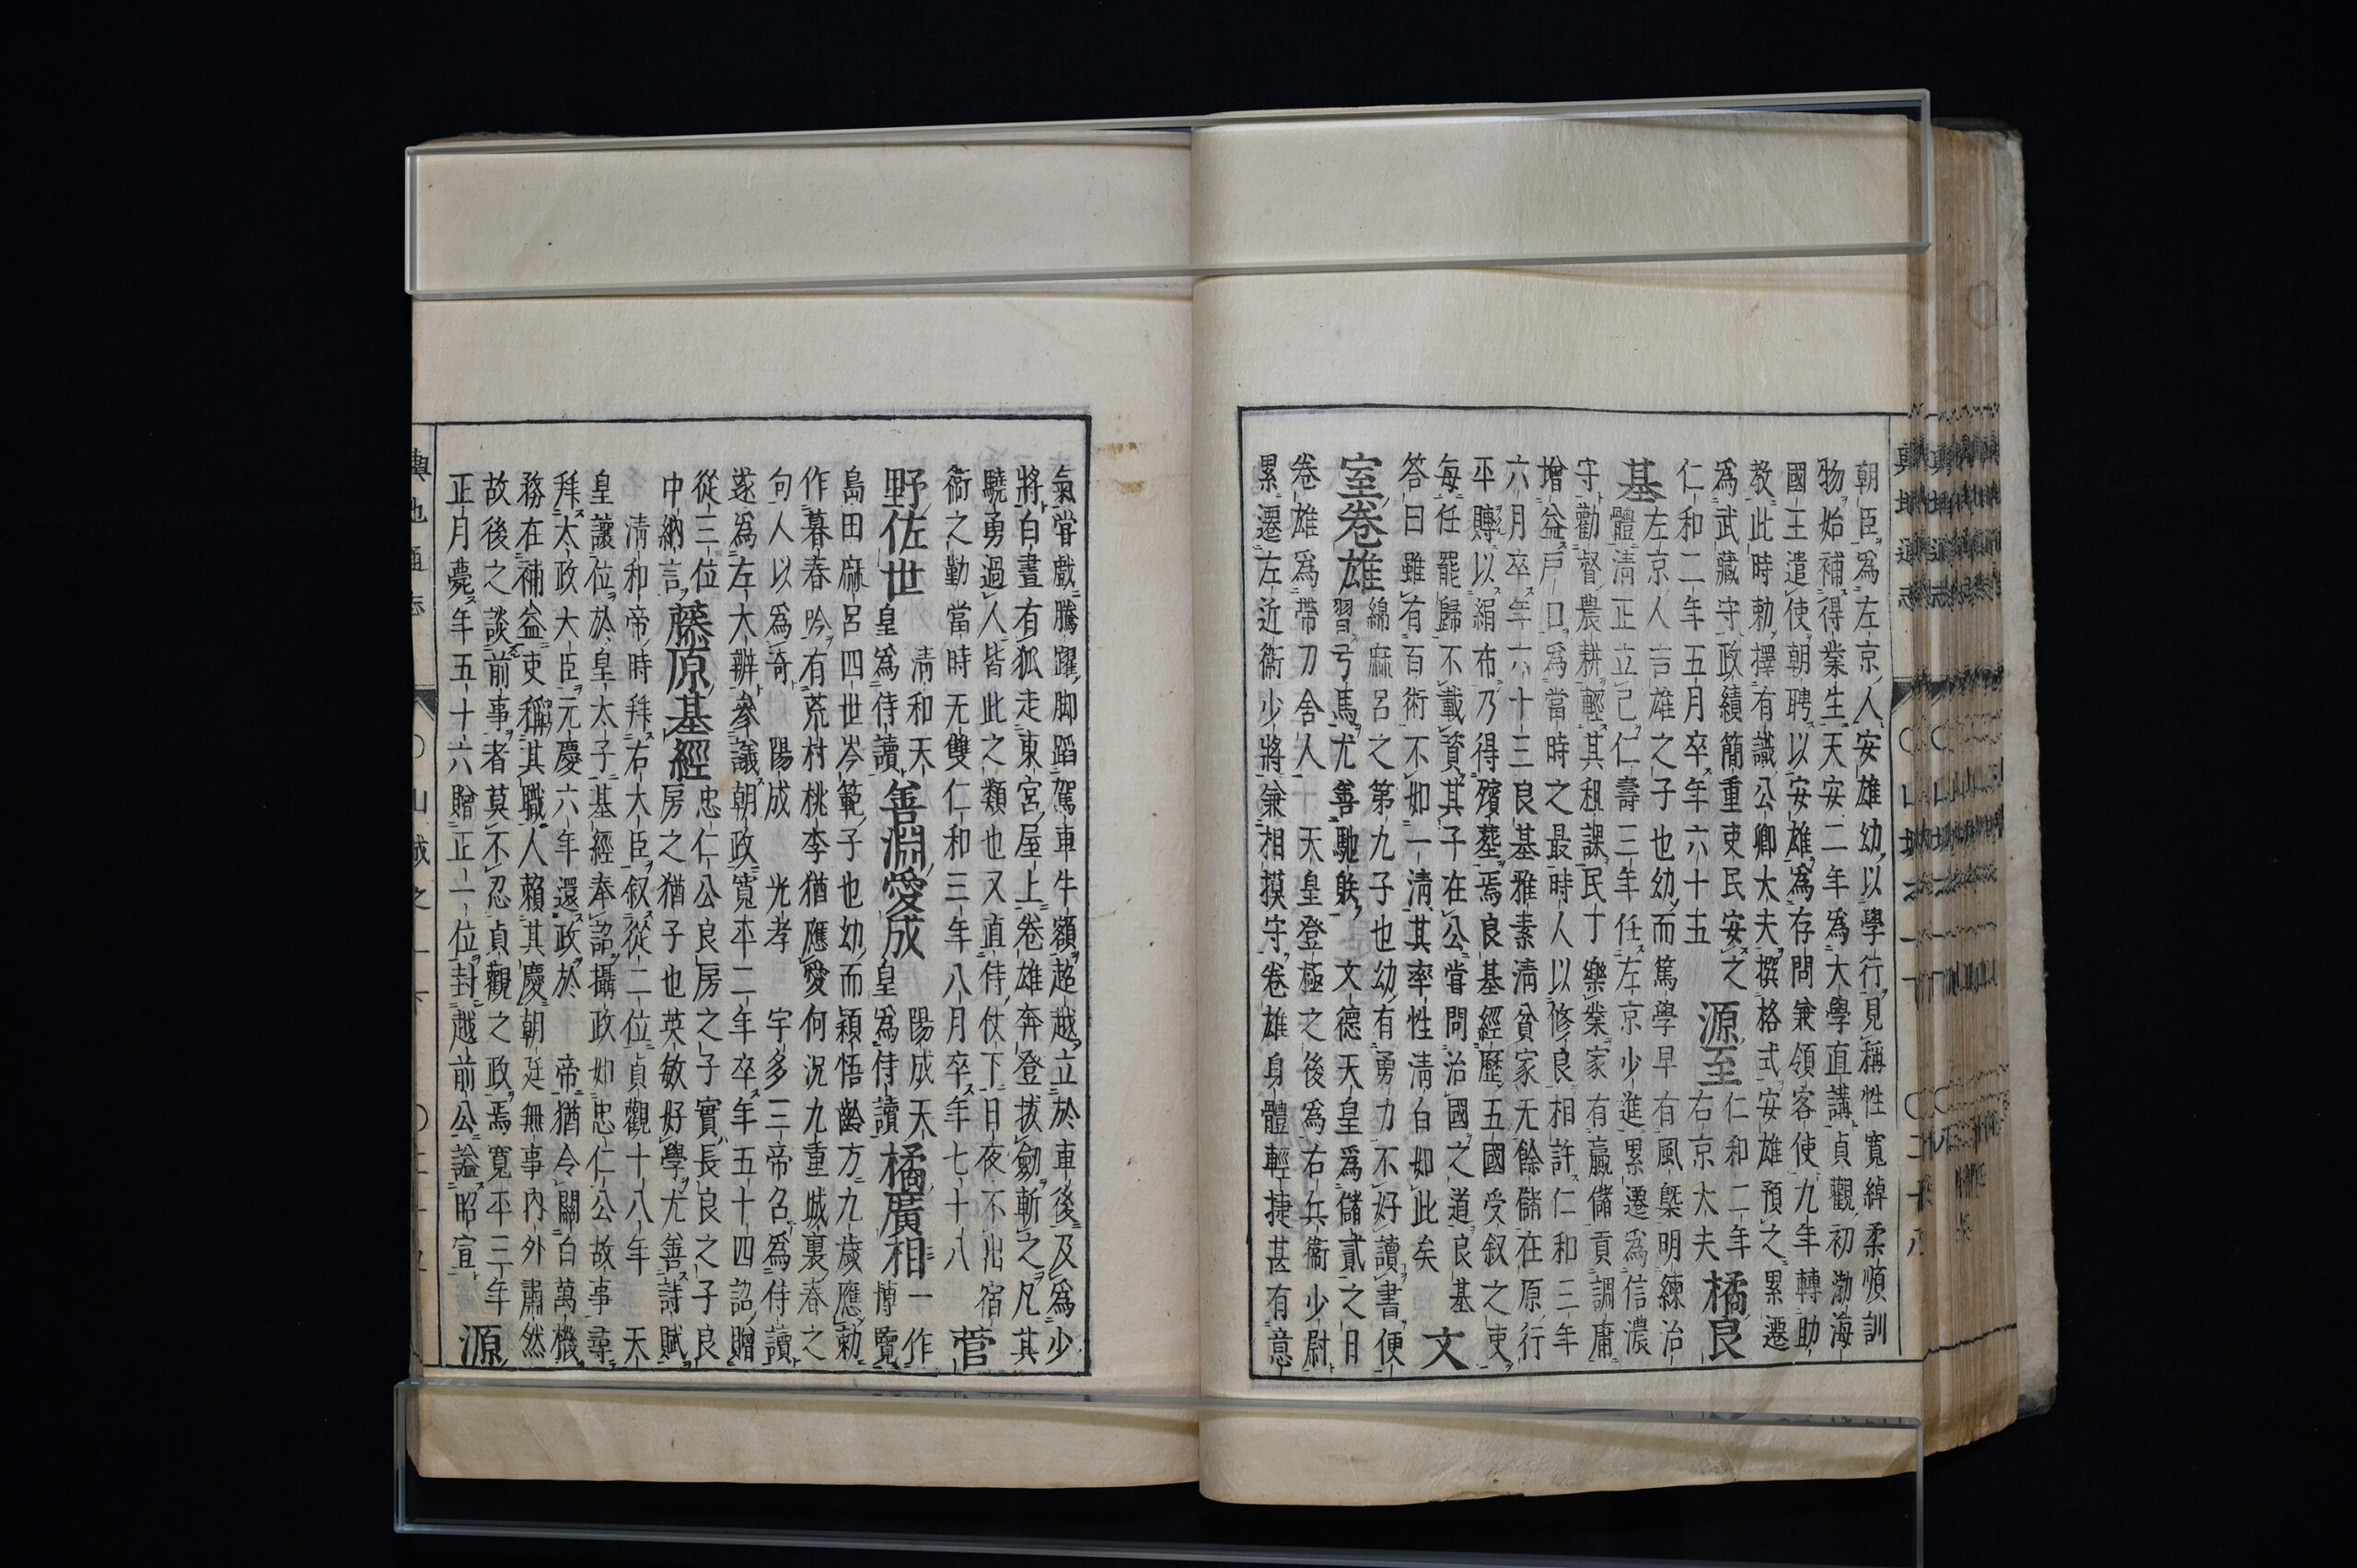 朝臣爲左京人安雄幼以學行見稱性寬綽柔順訓
物始補得業生天安二年爲大學直講貞觀初渤海
國王遣使朝聘以安雄爲存問兼領客使九年轉助
教此時勅擇有識公卿大夫撰格式安雄預之累遷
爲武藏守政績簡重吏民安之
仁和二年五月卒年六十五
源至
仁和二年
右京大夫
橘良
基
左京人言雄之子也幼而篤學早有風槩明練治
體清正立己仁壽三年任左京少進累遷爲信濃
守勸督農耕輕其租課民丁樂業家有贏儲貢調庸
增益戸口爲當時之最時人以修良相許仁和三年
六月卒年六十三良基雅素清貧家无餘儲在原行
平賻以絹布乃得殯葬焉良基經歷五國受叙之吏
每任罷歸不載資其子在公嘗問治國之道良基
答曰雖有百術不如一清其率性清白如此矣
文
室卷雄
綿麻呂之第九子也幼有勇力不好讀書便
習弓馬尤善馳躲 文德天皇爲儲貳之日
卷雄爲帶刀舍人 天皇登極之後爲右兵衞少尉
累遷左近衞少將兼相摸守卷雄身體輕捷甚有意
輿地通志 〇山城之一下
氣嘗戲騰躍脚蹈駕車牛額超越立於車後及爲少
將白晝有狐走東宮屋上卷雄奔登拔劒斬之凡其
驍勇過人皆此之類也又直侍仗下日夜不出宿
衞之勤當時无雙仁和三年八月卒年七十八
菅
野佐世
清和天
皇爲侍讀
善淵愛成
陽成天
皇爲侍讀
橘廣相
一作
博覽
島田麻呂四世岑範子也幼而穎悟齡方九歲應勅
作暮春吟有荒村桃李猶應愛何況九重城裏春之
句人以爲奇 陽成 光孝 宇多三帝召爲侍讀
遂爲左大辨參議朝政寬平二年卒年五十四詔贈
從三位
中納言
藤原基經
忠仁公良房之子實長良之子良
房之猶子也英敏好學尤善詩賦
清和帝時拜右大臣叙從二位貞觀十八年 天
皇讓位於皇太子基經奉詔攝政如忠仁公故事尋
拜太政大臣元慶六年還政於 帝猶令關白萬機
務在補益吏稱其職人賴其慶朝廷無事內外肅然
故後之談前事者莫不忍貞觀之政焉寬平三年
正月薨年五十六贈正一位封越前公謚昭宣
源
輿地通志 〇山城之一下